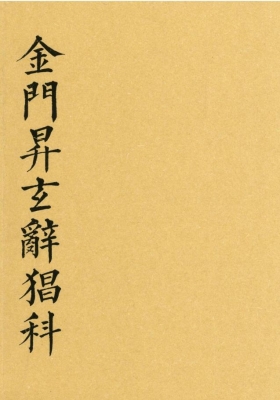 金門昇玄辭猖科